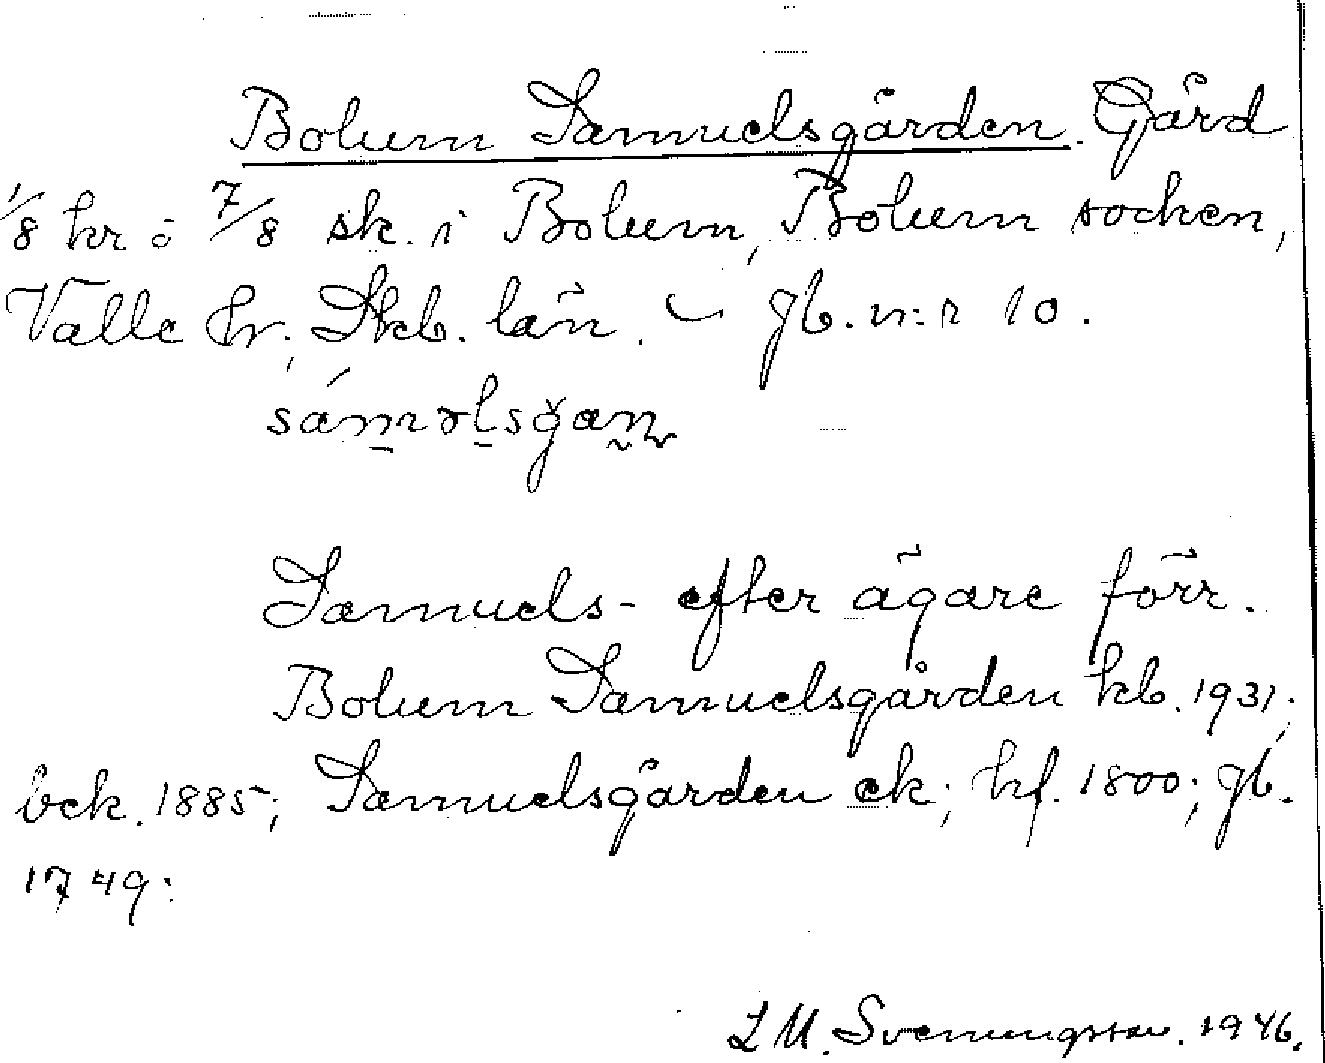 Bolum Samuelsgården. Gård
1/8 kr o 7/8 sk. i Bolum, Bolum socken,
Valle hr; Skb. län. – gb. n:r 10.
sám̱əḻsğan̰
Samuels- efter ägare förr.
Bolum Samuelsgården kb. 1931;
bek. 1885; Samuelsgården ek; hf. 1800; gb.
1749:
L M. Svenungsson. 1946.